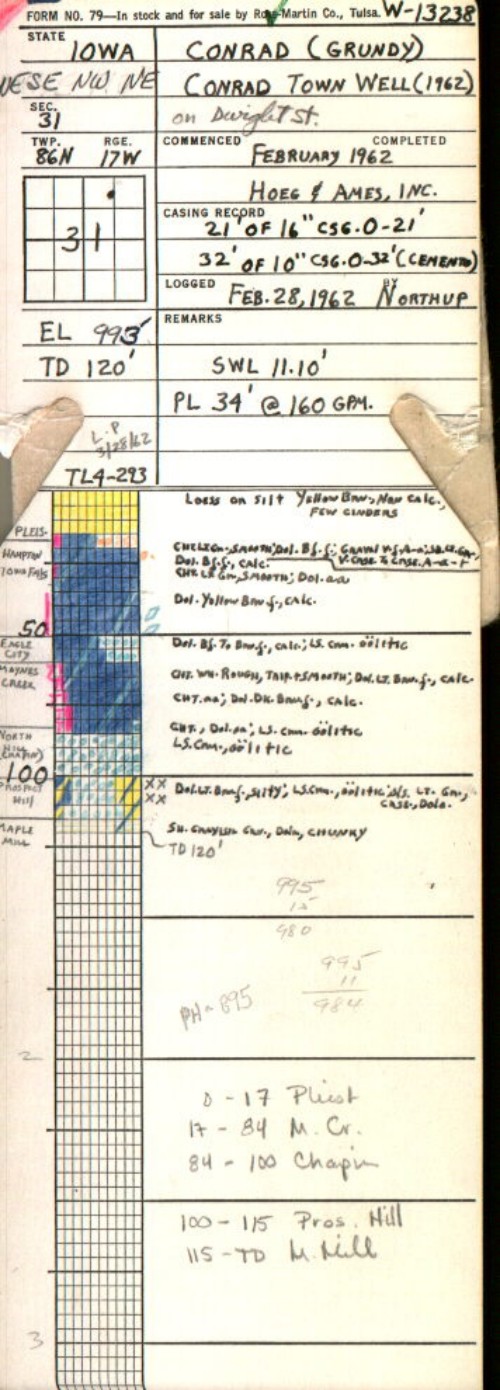 FORM NO. 79—In stock and for sale by Ross-Martin Co., Tulsa. W-13238
STATE
IOWA
CONRAD (GRUNDY)
NESE NW NE
CONRAD TOWN WELL (1962)
SEC.
31
on Dwight St.
TWP. RGE.
86N 17W
COMMENCED COMPLETED
FEBRUARY 1962
31
HOEG & AMES, INC.
CASING RECORD
21' OF 16" CSG. 0-21'
32' OF 10" CSG. 0-32' (CEMENTED)
LOGGED BY
FEB. 28, 1962 NORTHUP
EL 993'
REMARKS
TD 120'
SWL 11.10'
PL 34' @ 160 GPM.
L.P
3/28/62
TL4-293
LOESS OR SILT YELLOW BRN., NON CALC.,
FEW CINDERS
PLEIS.
HAMPTON
IOWA FALLS
CHT. SMOOTH; DOL. BF. f.;
DOL. BF. f., CALC.
SMOOTH; DOL. aa
DOL. YELLOW BRN f., CALC.
50
EAGLE
CITY
DOL. BF. TO BRN f., CALC.; LS. CRM. OÖLITIC
MAYNES
CREEK
CHT. WH. ROUGH, TRIP. + SMOOTH; DOL. LT. BRN. f., CALC.
CHT. aa; DOL. DK. BRN f., CALC.
NORTH
HILL
(CHAPIN)
CHT., DOL. aa; LS. CRM. OÖLITIC
LS. CRM., OÖLITIC
100
PROSPECT
HILL
XX
XX
DOL. LT. BRN f., SILTY; LS. CRM., OÖLITIC; SLS. LT. GN.,
CASE., DOLO.
MAPLE
MILL
SH. GRAYISH GRN., DOLO, CHUNKY
TD 120'
995
15
980
995
11
984
PH - 895
2
0 - 17 Pleist
17 - 84 M. Cr.
84 - 100 Chapin
100 - 115 Pros. Hill
115 - TD M. Mill
3